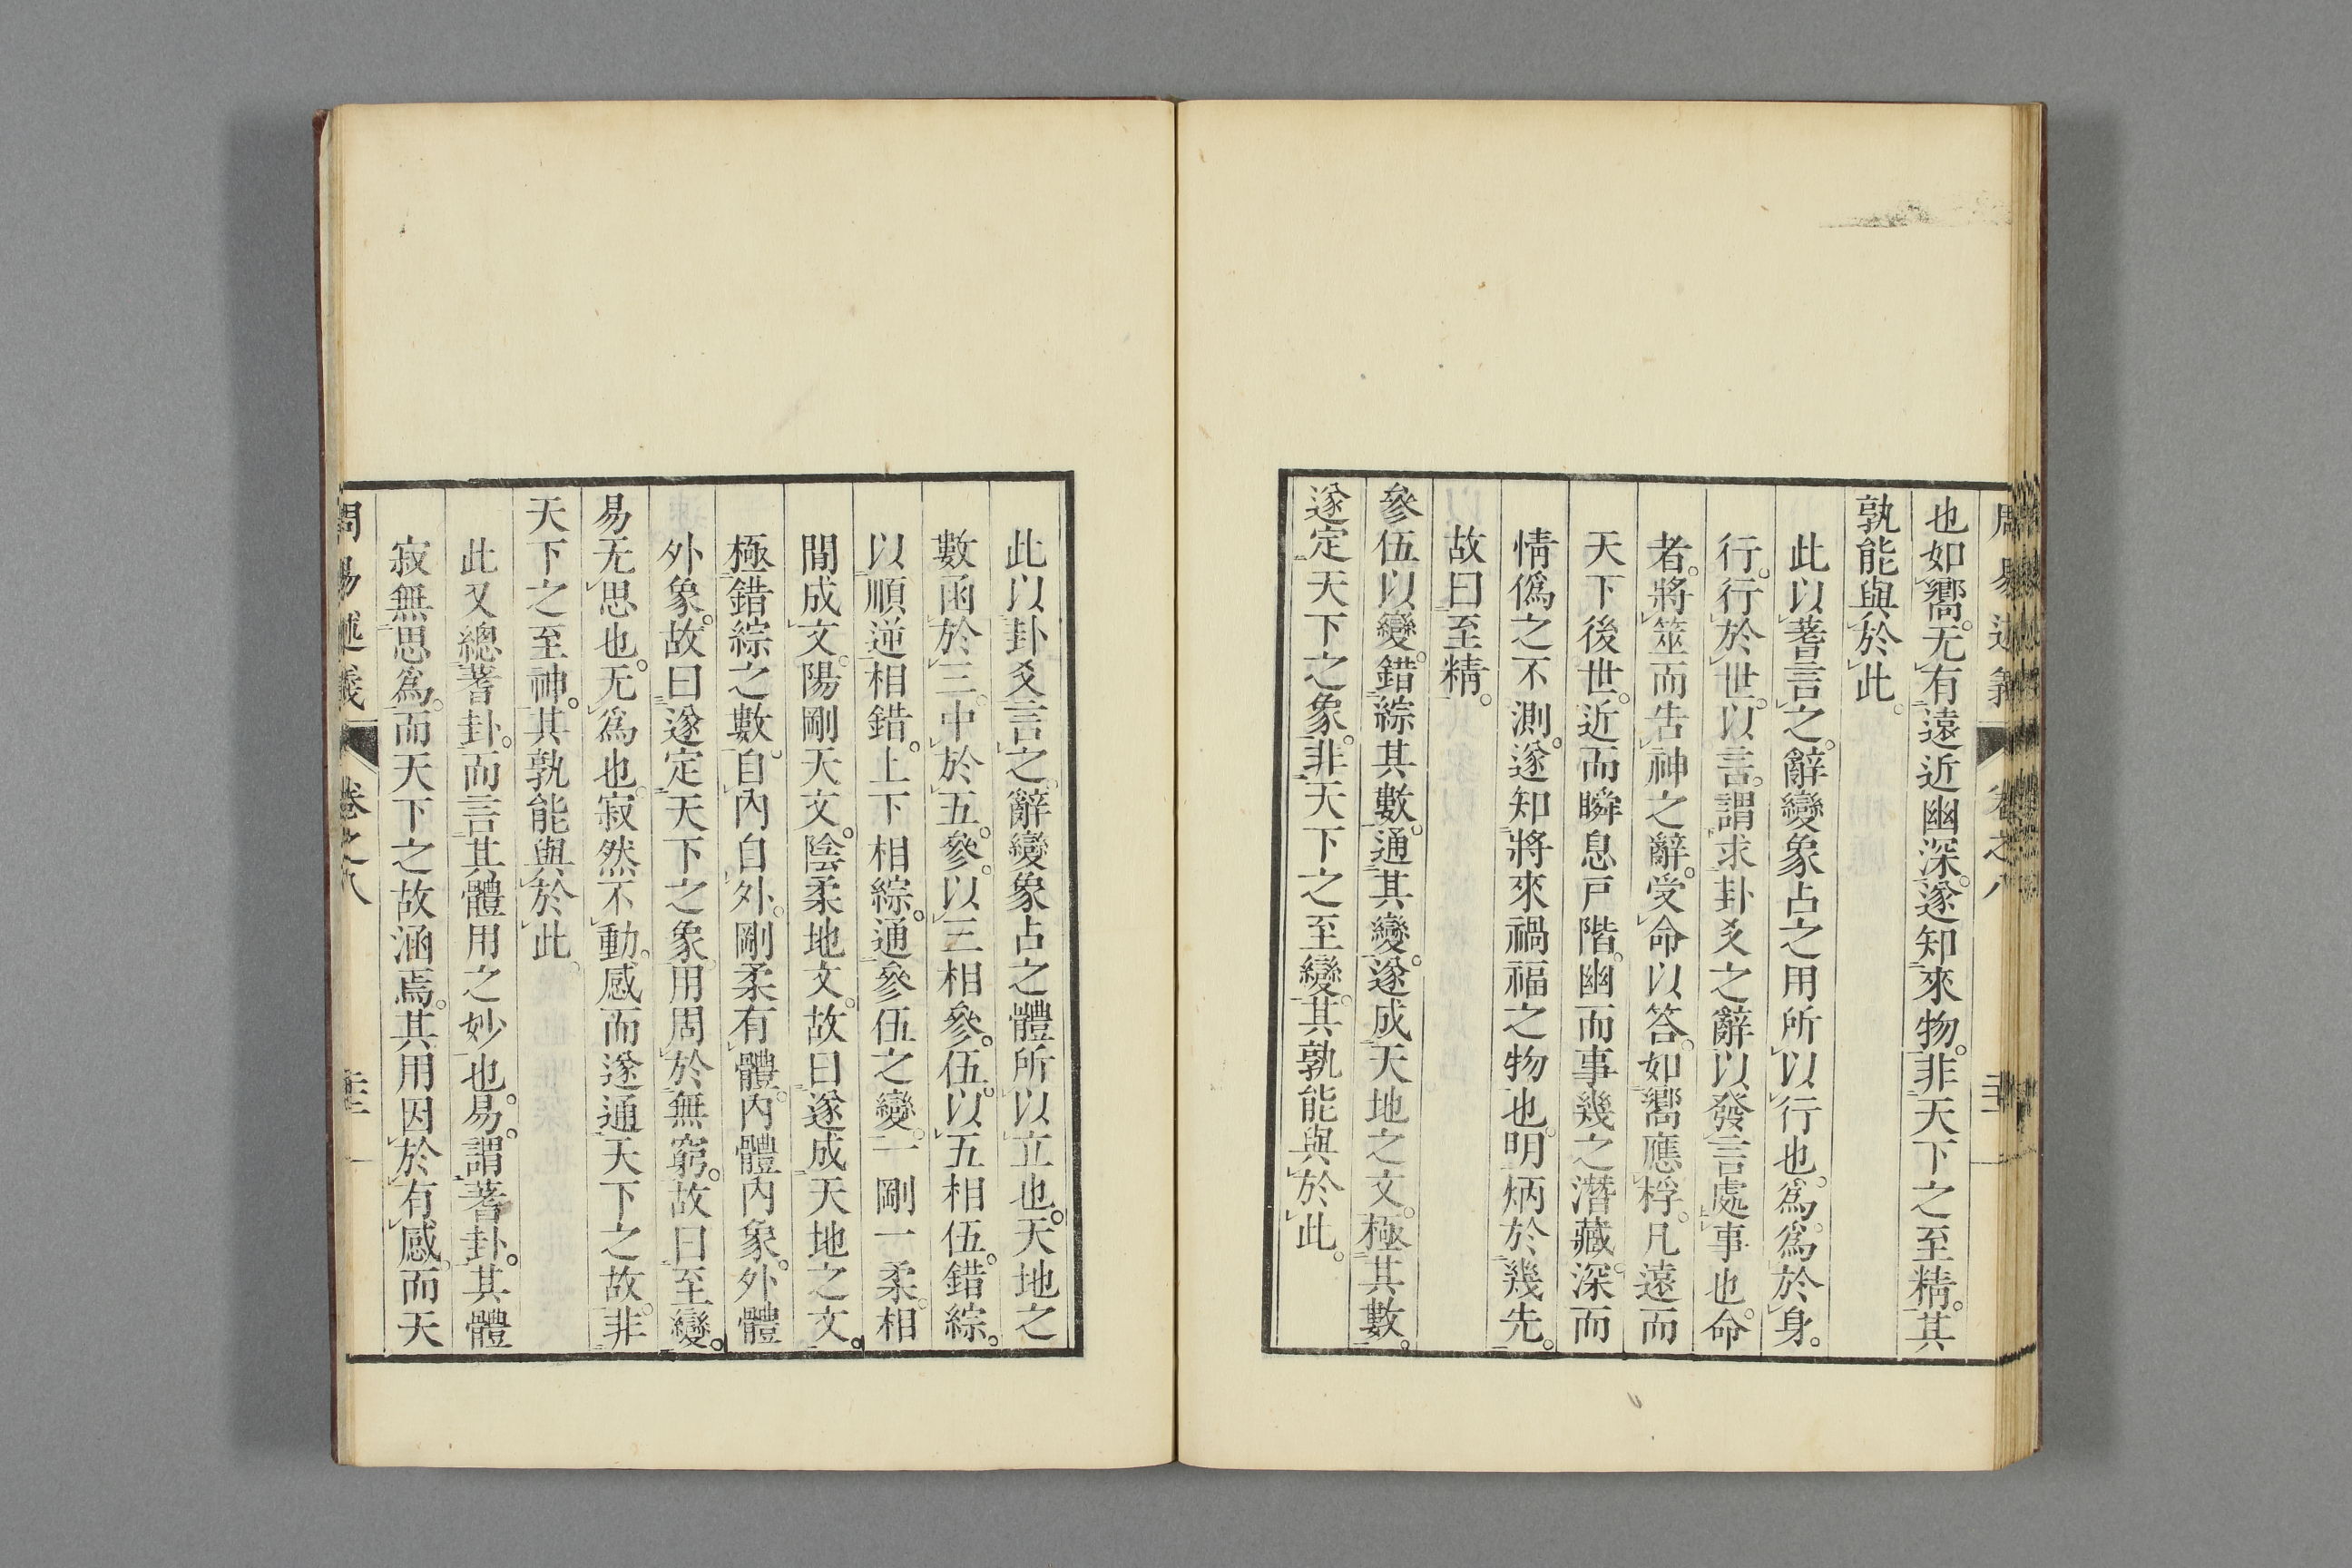 周易述義　卷之八
也如嚮。无有遠近幽深。遂知來物。非天下之至精。其
孰能與於此。
此以蓍言之。辭變象占之用所以行也。爲。爲於身。
行。行於世。以言。謂求卦爻之辭以發言處事也。命
者。將筮而告神之辭。受命以答。如嚮應桴。凡遠而
天下後世。近而瞬息戸階。幽而事幾之潛藏。深而
情僞之不測。遂知將來禍福之物也。明炳於幾先。
故曰至精。
參伍以變。錯綜其數。通其變。遂成天地之文。極其數。
遂定天下之象。非天下之至變。其孰能與於此。
此以卦爻言之。辭變象占之體所以立也。天地之
數函於三。中於五。參。以三相參。伍。以五相伍。錯綜。
以順逆相錯。上下相綜。通參伍之變。一剛一柔。相
間成文。陽剛天文。陰柔地文。故曰遂成天地之文。
極錯綜之數。自內自外。剛柔有體。內體內象。外體
外象。故曰遂定天下之象。用周於無窮。故曰至變。
易无思也。无爲也。寂然不動。感而遂通天下之故。非
天下之至神。其孰能與於此。
此又總蓍卦。而言其體用之妙也。易。謂蓍卦。其體
寂無思爲。而天下之故涵焉。其用因於有感。而天
周易述義　卷之八